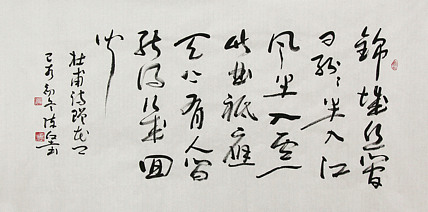 錦城丝管
日紛々半入江
風半入雲
此曲祗應
天上有人間
能得幾回
聞
杜甫詩贈花卿
己亥初冬